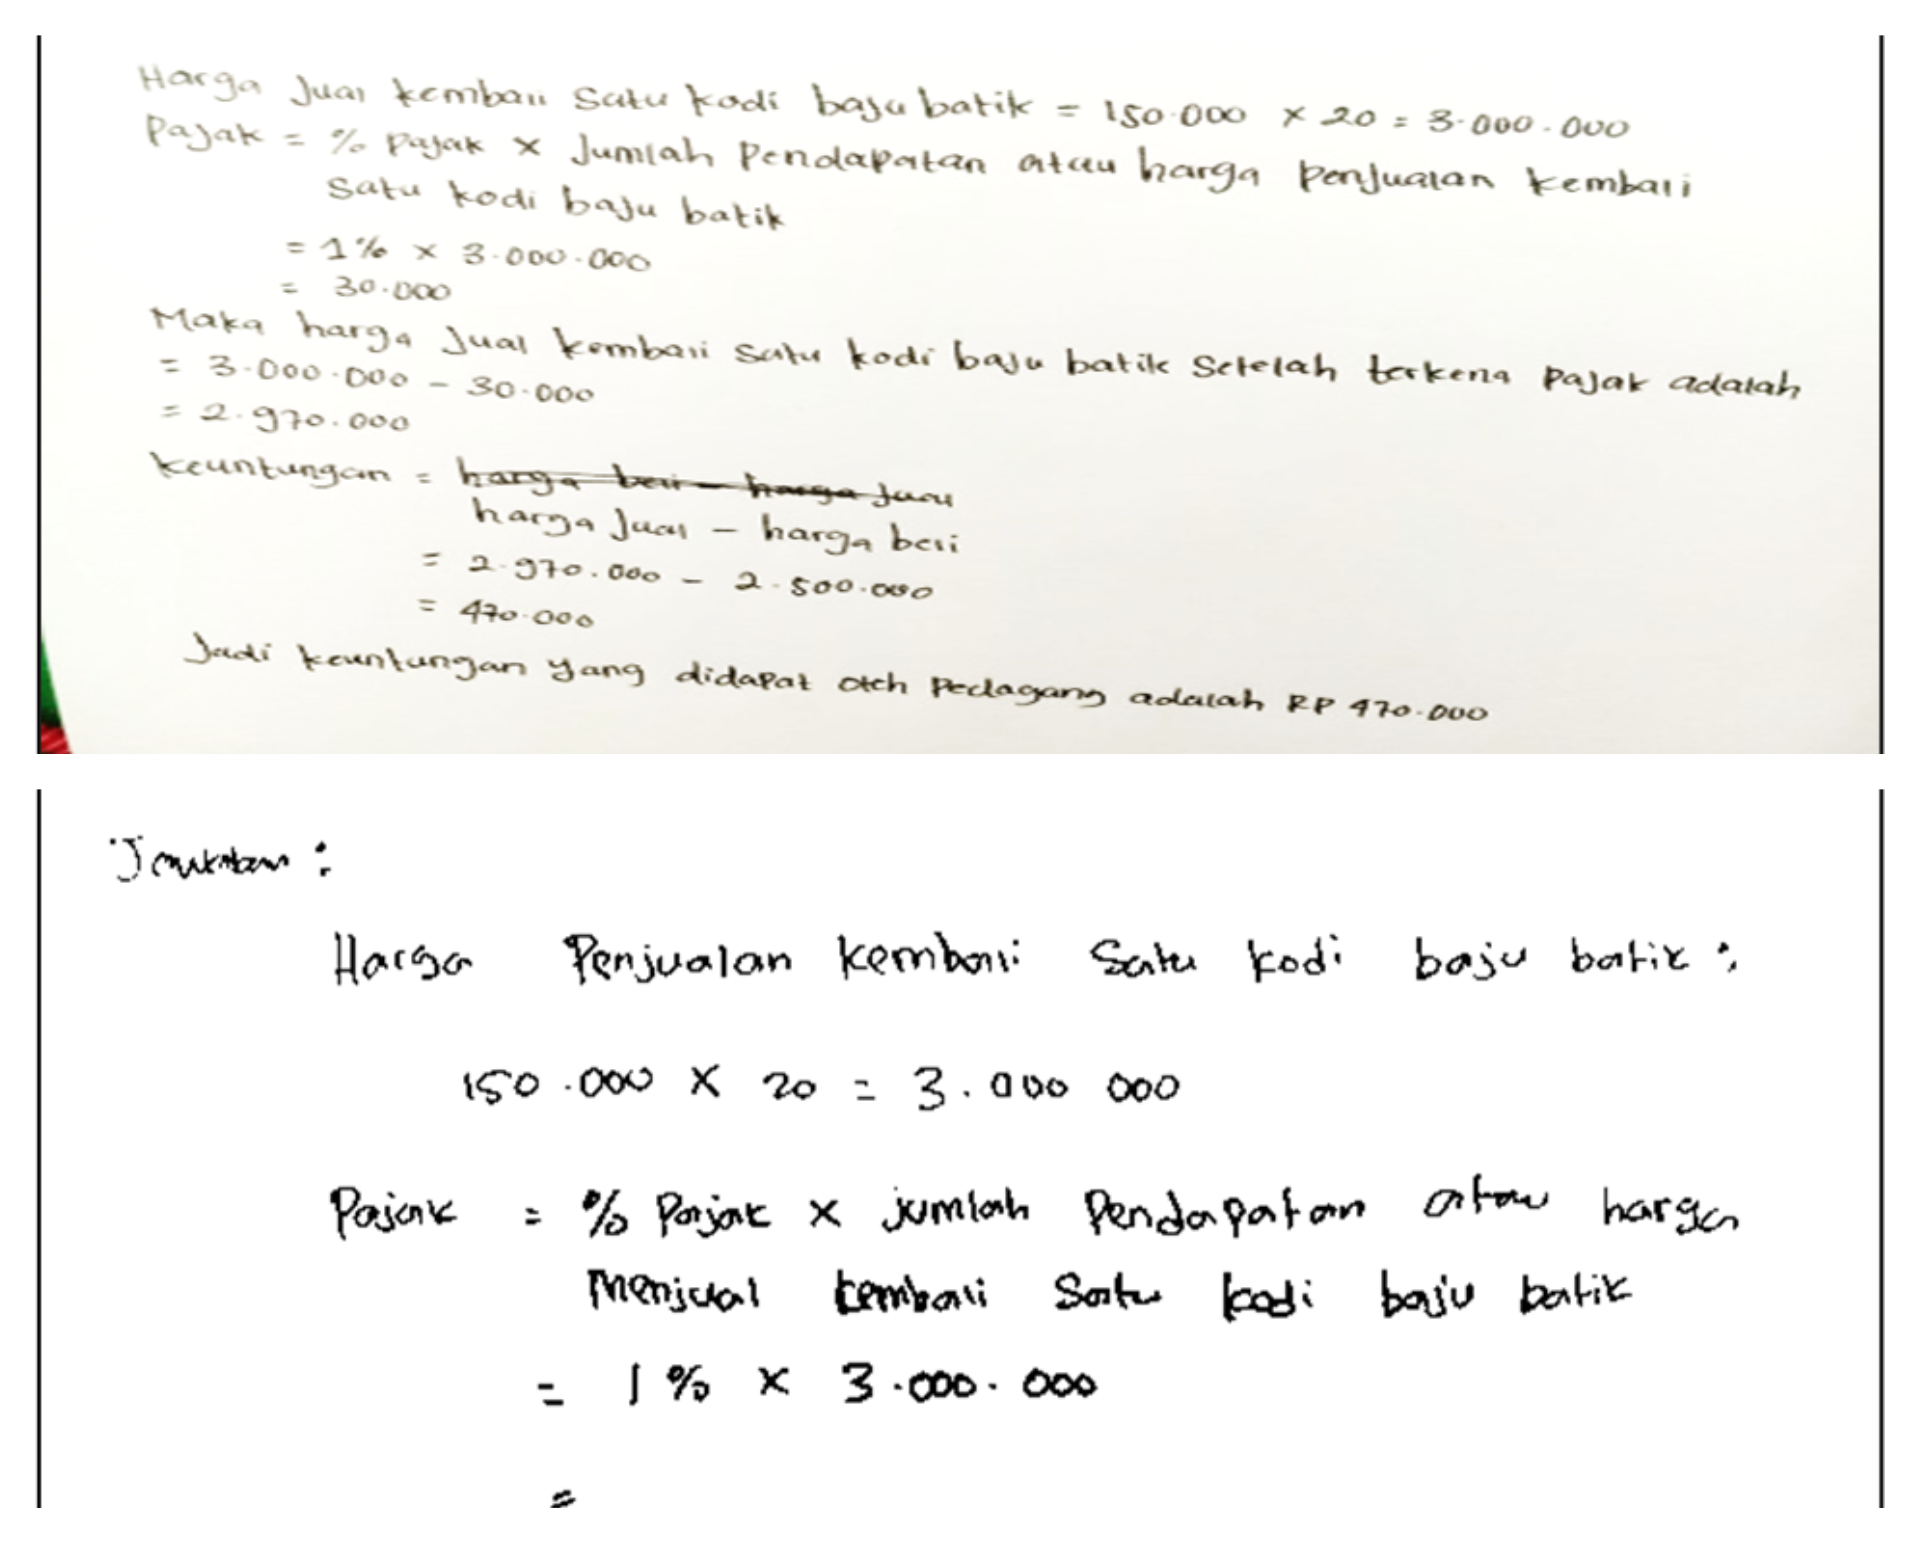 Harga Jual kembali Satu kodi baju batik = 150.000 × 20 = 3.000.000
Pajak = % Pajak × Jumlah Pendapatan atau harga Penjualan kembali
Satu kodi baju batik
= 1% × 3.000.000
= 30.000
Maka harga Jual kembali Satu kodi baju batik Setelah terkena Pajak adalah
= 3.000.000 - 30.000
= 2.970.000
keuntungan = harga beli - harga jual
harga Jual - harga beli
= 2.970.000 - 2.500.000
= 470.000
Jadi keuntungan yang didapat oleh Pedagang adalah RP 470.000
Jawaban :
Harga Penjualan kembali Satu kodi baju batik :
150.000 × 20 = 3.000 000
Pajak = % Pajak × jumlah Pendapatan atau harga
Menjual kembali Satu kodi baju batik
= 1 % × 3.000.000
=